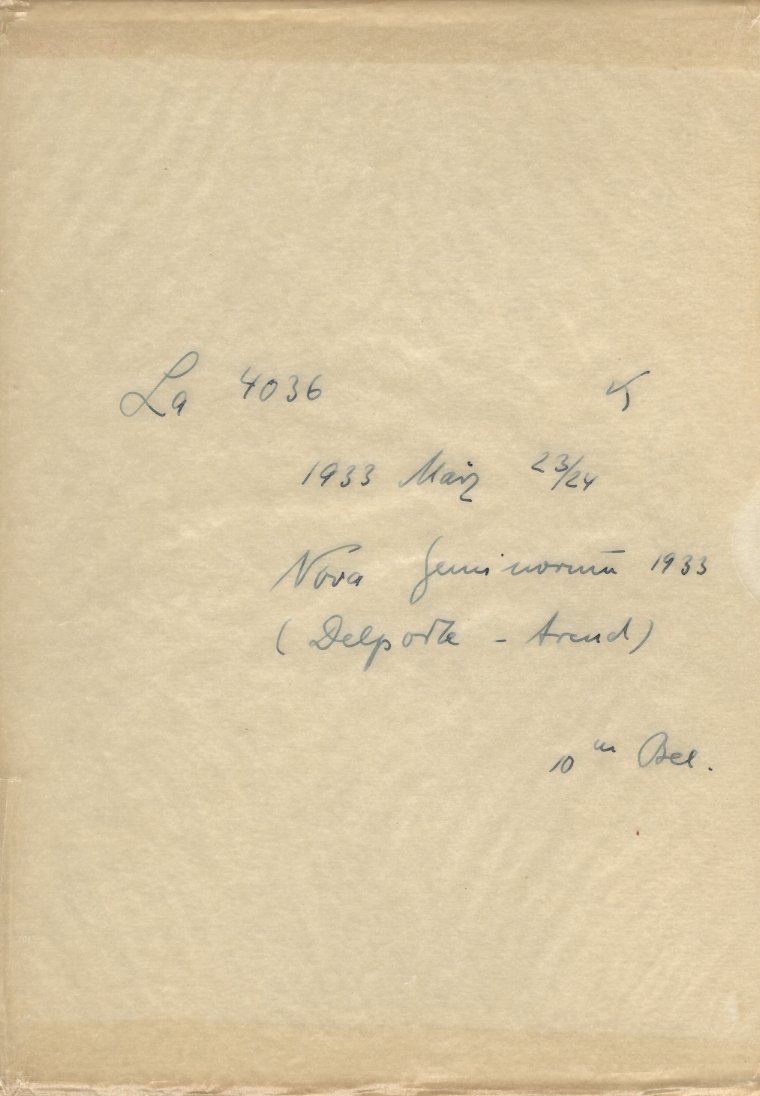 La 4036 K
1933 März 23/24
Nova Geminorū 1933
(Delporte - Arend)
10ᵐ Bel.